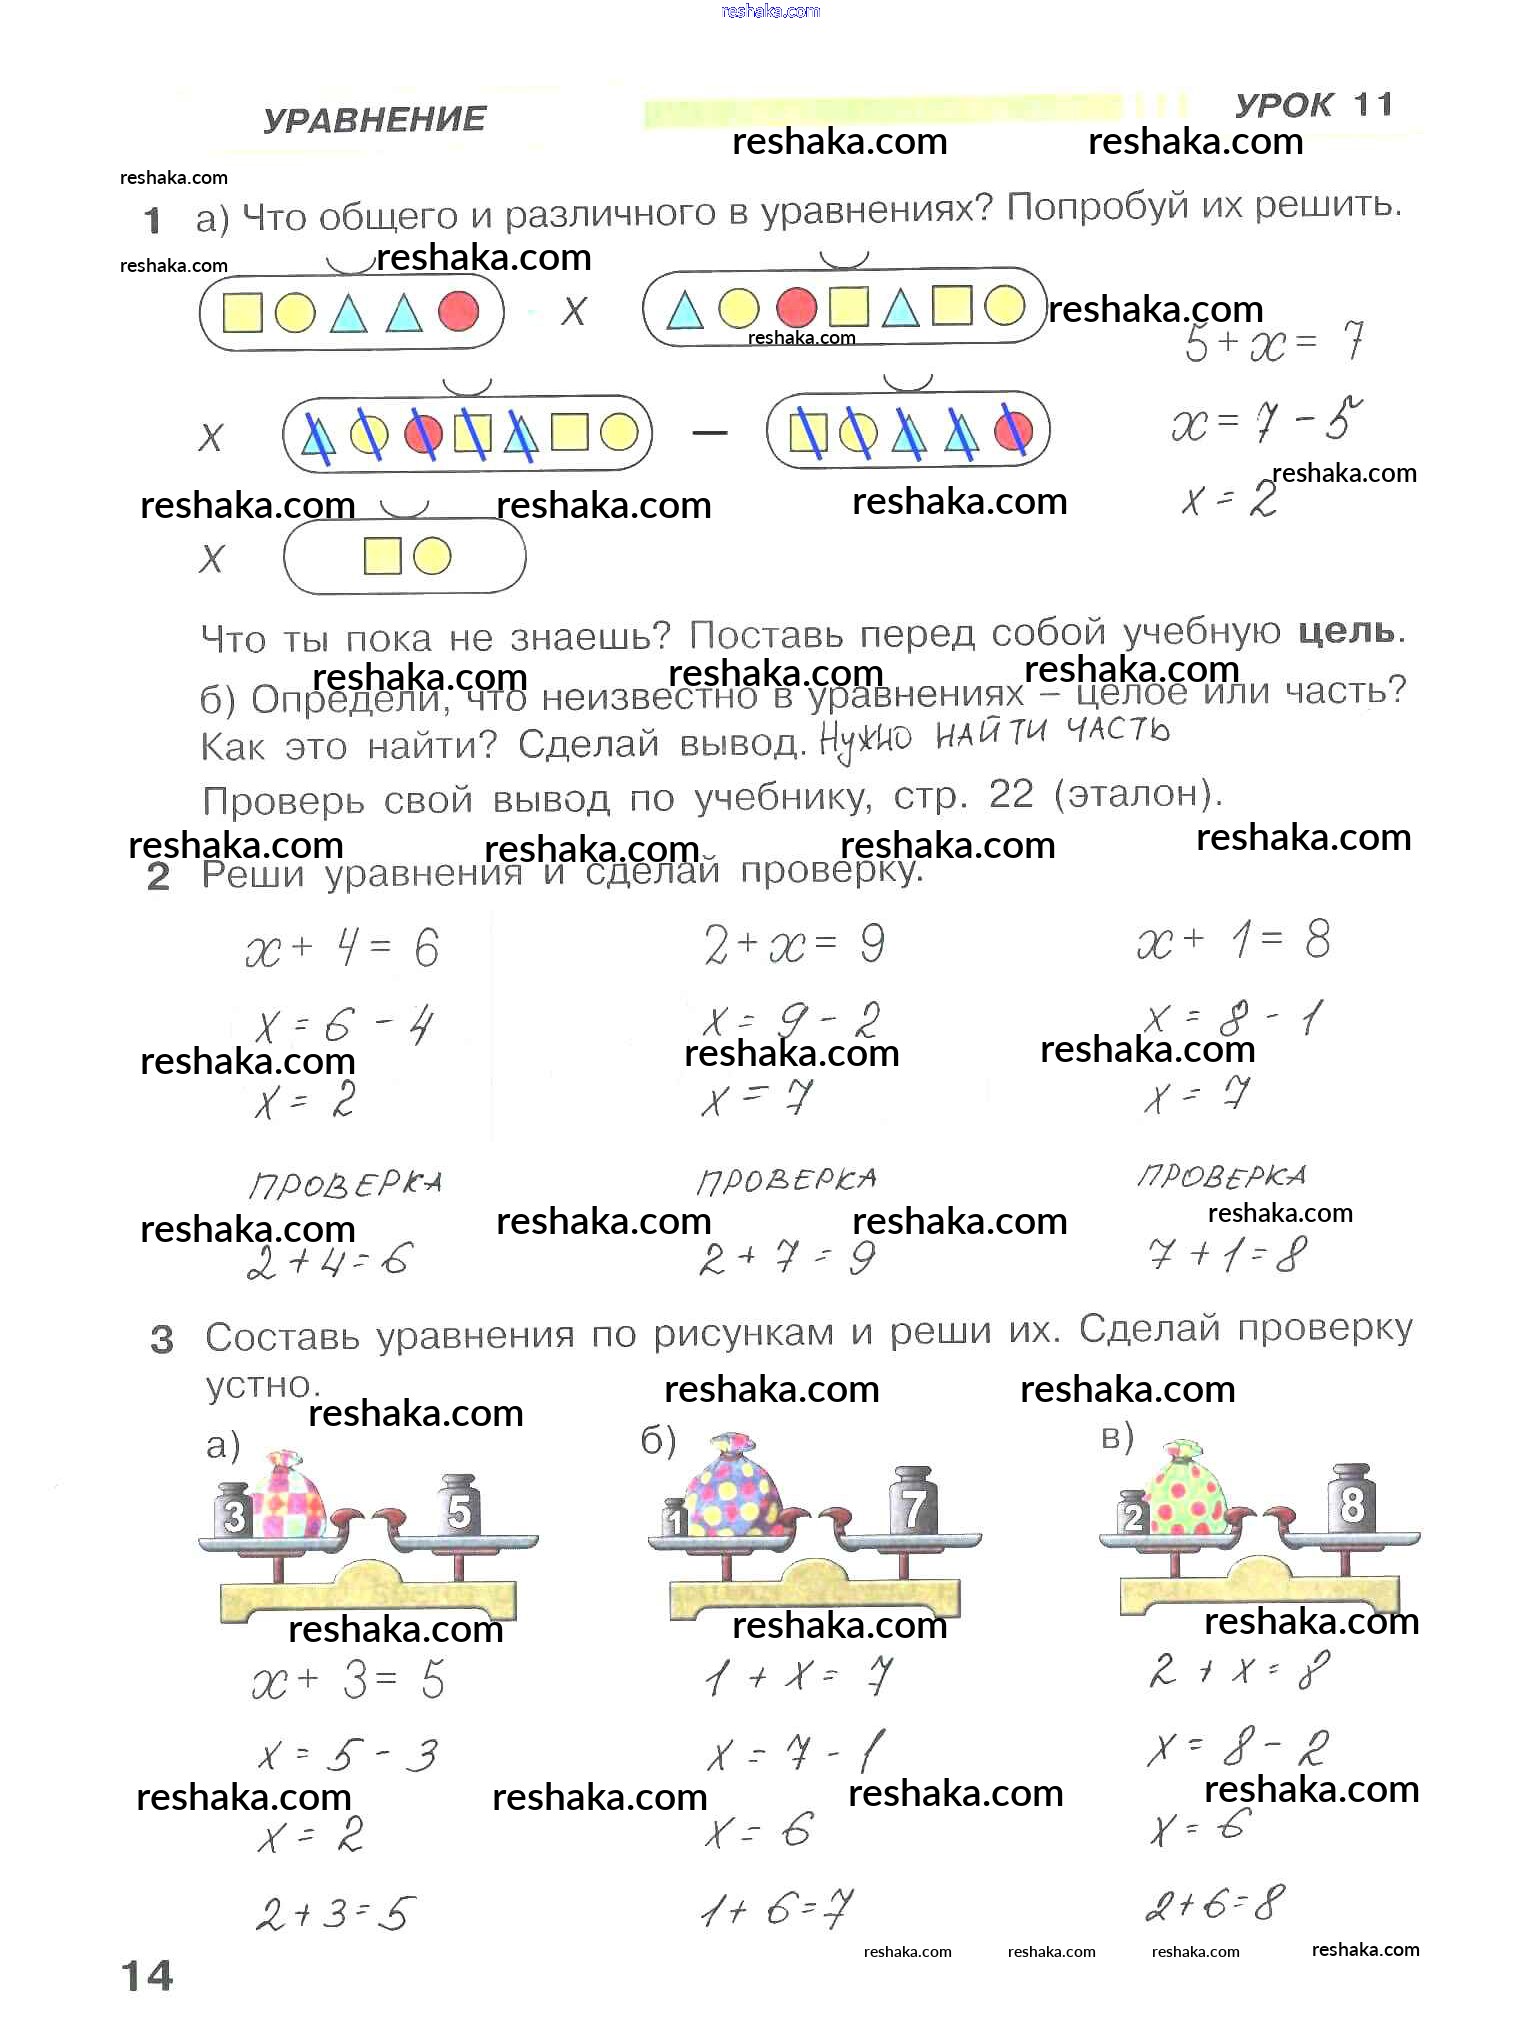 reshaka.com
УРАВНЕНИЕ
УРОК 11
reshaka.com reshaka.com
reshaka.com
1 а) Что общего и различного в уравнениях? Попробуй их решить.
reshaka.com reshaka.com
X
reshaka.com
reshaka.com
5 + x = 7
X —
x = 7 - 5
reshaka.com
x = 2
reshaka.com reshaka.com reshaka.com
X
Что ты пока не знаешь? Поставь перед собой учебную цель.
reshaka.com reshaka.com reshaka.com
б) Определи, что неизвестно в уравнениях – целое или часть?
Как это найти? Сделай вывод. НУЖНО НАЙТИ ЧАСТЬ
Проверь свой вывод по учебнику, стр. 22 (эталон).
reshaka.com reshaka.com reshaka.com reshaka.com
2 Реши уравнения и сделай проверку.
x + 4 = 6 2 + x = 9 x + 1 = 8
x = 6 - 4 x = 9 - 2 x = 8 - 1
reshaka.com reshaka.com reshaka.com
x = 2 x = 7 x = 7
ПРОВЕРКА ПРОВЕРКА ПРОВЕРКА
reshaka.com reshaka.com reshaka.com reshaka.com
2 + 4 = 6 2 + 7 = 9 7 + 1 = 8
3 Составь уравнения по рисункам и реши их. Сделай проверку
устно.
reshaka.com reshaka.com reshaka.com
а) б) в)
3 5 1 7 2 8
reshaka.com reshaka.com reshaka.com
x + 3 = 5 1 + x = 7 2 + x = 8
x = 5 - 3 x = 7 - 1 x = 8 - 2
reshaka.com reshaka.com reshaka.com reshaka.com
x = 2 x = 6 x = 6
2 + 3 = 5 1 + 6 = 7 2 + 6 = 8
reshaka.com reshaka.com reshaka.com reshaka.com
14